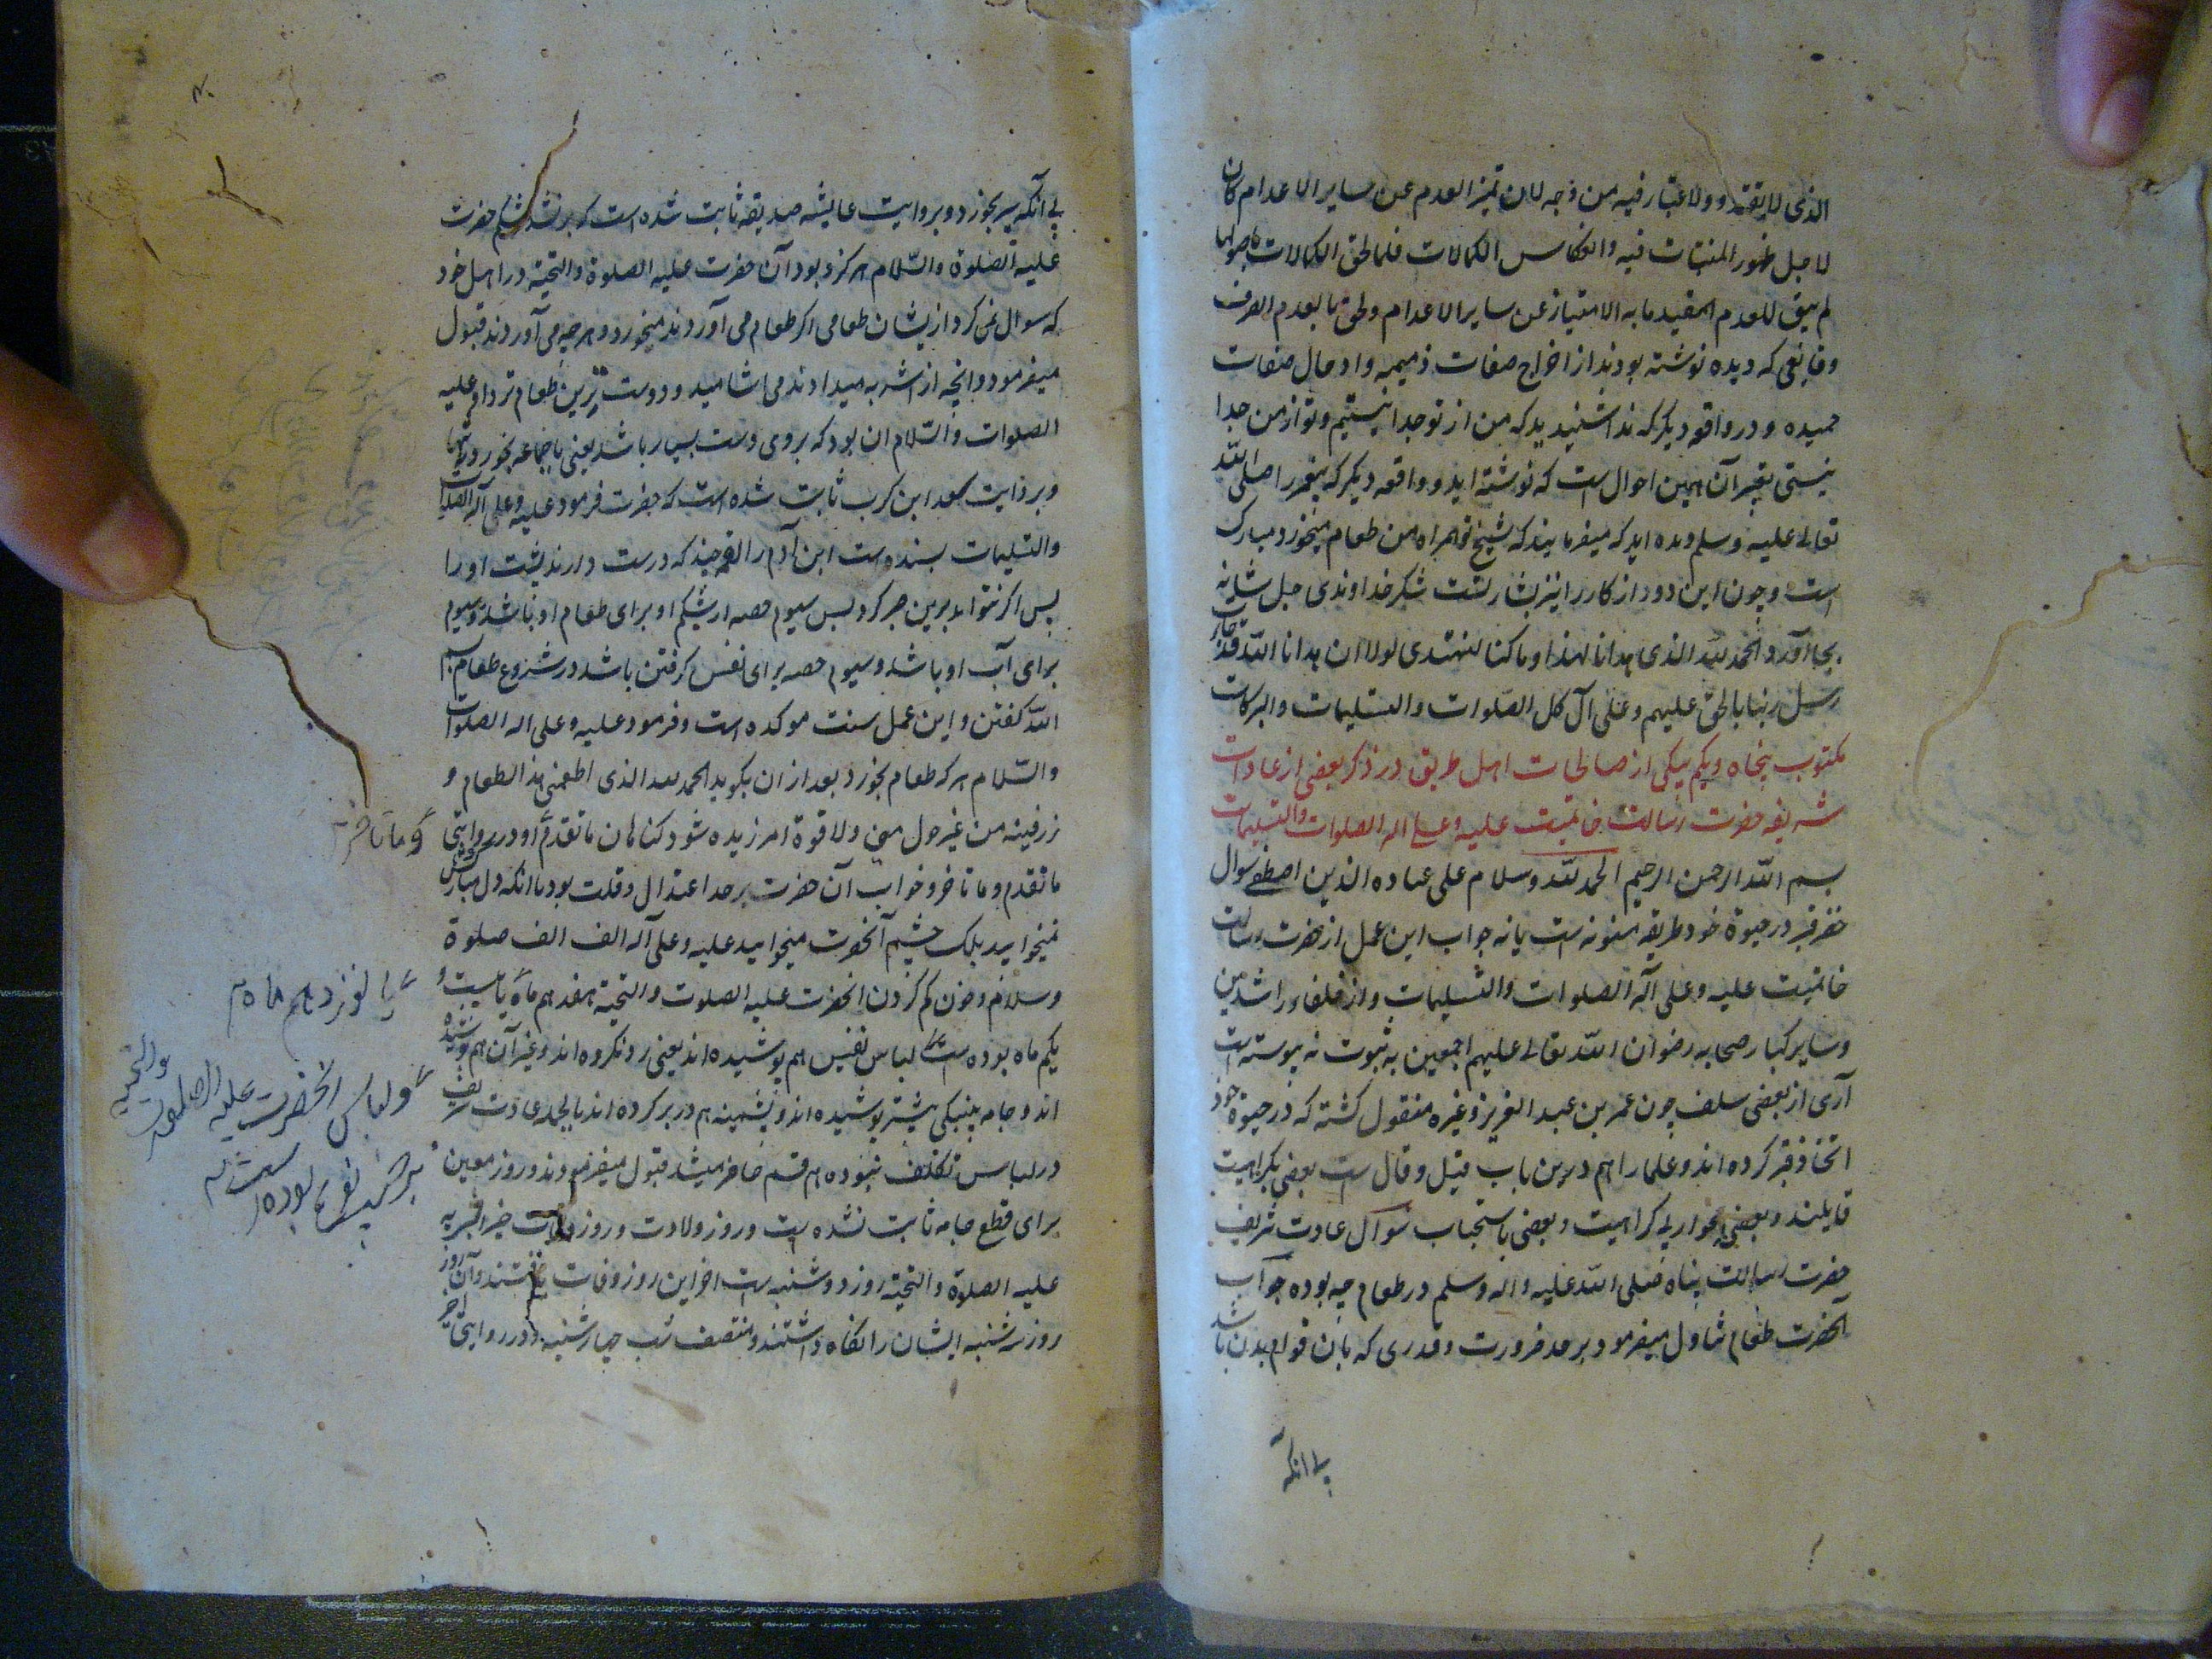 الذی لا یقتد ولا عتبار فیه من وجه لان تمیز العدم عن سایر الاعدام کان
لاجل ظهور المثبتات فیه وانعکاس الکمالات فلما لحق الکمالات باصولها
لم یبق للعدم المقید ما به الامتیاز عن سایر الاعدام ولحق بالعدم الصرف
وقایعی که دیده نوشته بودند از اخراج صفات ذمیمه وادخال صفات
حمیده و در واقعه دیگر که ندا شنیدید که من از تو جدا نیستم و تو از من جدا
نیستی تعبیر آن همین احوال است که نوشته اید و واقعه دیگر که پیغمبر را صلی الله
تعالی علیه وسلم دیده اید که میفرمایند که شیخ تو همراه من طعام میخورد مبارک
است و چون این دور از کار را نیز بشارتست شکر خداوندی جل شانه
بجا آورد الحمد لله الذی هدانا لهذا وما کنا لنهتدی لولا ان هدانا الله لقد جاءت
رسل ربنا بالحق علیهم وعلی آل کل الصلوات والتسلیمات والبرکات
مکتوب پنجاه و یکم بیکی از صالحات اهل طریق در ذکر بعضی از عادات
شریفه حضرت رسالت خاتمیت علیه وعلی اله الصلوات والتسلیمات
بسم الله الرحمن الرحیم الحمد لله وسلام علی عباده الذین اصطفی سوال
حفر قبر در حیوة خود طریقه مسنونه است یا نه جواب این عمل از حضرت رسالت
خاتمیت علیه وعلی آله الصلوات والتسلیمات و از خلفاء راشدین
وسایر کبار صحابه رضوان الله تعالی علیهم اجمعین به ثبوت نه پیوسته است
آری از بعضی سلف چون عمر بن عبد العزیز و غیره منقول گشته که در حیوة خود
اتخاذ قبر کرده اند و علما را هم درین باب قیل و قال است بعضی بکراهیت
قایلند و بعضی بجواز بی کراهیت و بعضی باستحباب سوال عادت شریف
حضرت رسالت پناه صلی الله علیه واله وسلم در طعام چه بوده جواب
آنحضرت طعام تناول میفرمود بر حد ضرورت و قدری که بآن قوام بدن باشد
بی انکه
بی آنکه سیر بخورد و بروایت عایشه صدیقه ثابت شده است که پر نشد شکم حضرت
علیه الصلوة والسلام هرگز و بود آن حضرت علیه الصلوة والتحیة در اهل خود
که سوال نمی کرد از ایشان طعامی اگر طعام می آوردند میخورد و هرچه می آوردند قبول
میفرمود وانچه از اشربه میدادند می اشامید و دوست ترین طعام نزد او علیه
الصلوات والسلام ان بود که بروی دست بسیار باشد یعنی با جماعه بخورد نه تنها
و بروایت معد ابن کرب ثابت شده است که حضرت فرمود علیه وعلی آله الصلوات
والتسلیمات بسنده است ابن آدم را لقمه چند که درست دارند پشت او را
پس اگر نتواند برین صبر کرد پس سیوم حصه از شکم او برای طعام او باشد و سیوم
برای آب او باشد و سیوم حصه برای نفس گرفتن باشد در شروع طعام بسم
الله گفتن و این عمل سنت موکده است و فرمود علیه وعلی اله الصلوات
والسلام هر که طعام بخورد بعد از ان بگوید الحمد لله الذی اطعمنی هذا الطعام و
رزقنیه من غیر حول منی ولا قوة امرزیده شود گناهان ما تقدم او در روایتی
و ما تاخر
ما تقدم وما تاخر و خواب آن حضرت بر حد اعتدال و قلت بود با انکه دل مبارکش
نمیخوابید بلکه چشم آنحضرت میخوابید علیه وعلی آله الف الف صلوة
وسلام و خون کم کردن انحضرت علیه الصلوت والتحیة هفدهم ماه یا بیست و
یا نوزدهم ماه
یکم ماه بوده است لباس نفیس هم پوشیده اند یعنی رد نکرده اند و غیر آن هم پوشیده
ولباس انحضرت علیه الصلوت والتحیة
بر نفس بوده است
اند و جامه پنبگی بیشتر پوشیده اند و پشمینه هم در بر کرده اند بالجمله عادت شریف
در لباس تکلف نبوده هر قسم حاضر میشد قبول میفرمودند و روز معین
برای قطع جامه ثابت نشده است و روز ولادت و روز وفات خیر البریه
علیه الصلوة والتحیة روز دوشنبه است اخر این روز وفات یافتند و آن روز
روز سه شنبه ایشان را نگاه داشتند و منتصف شب چهارشنبه و در روایتی اخر